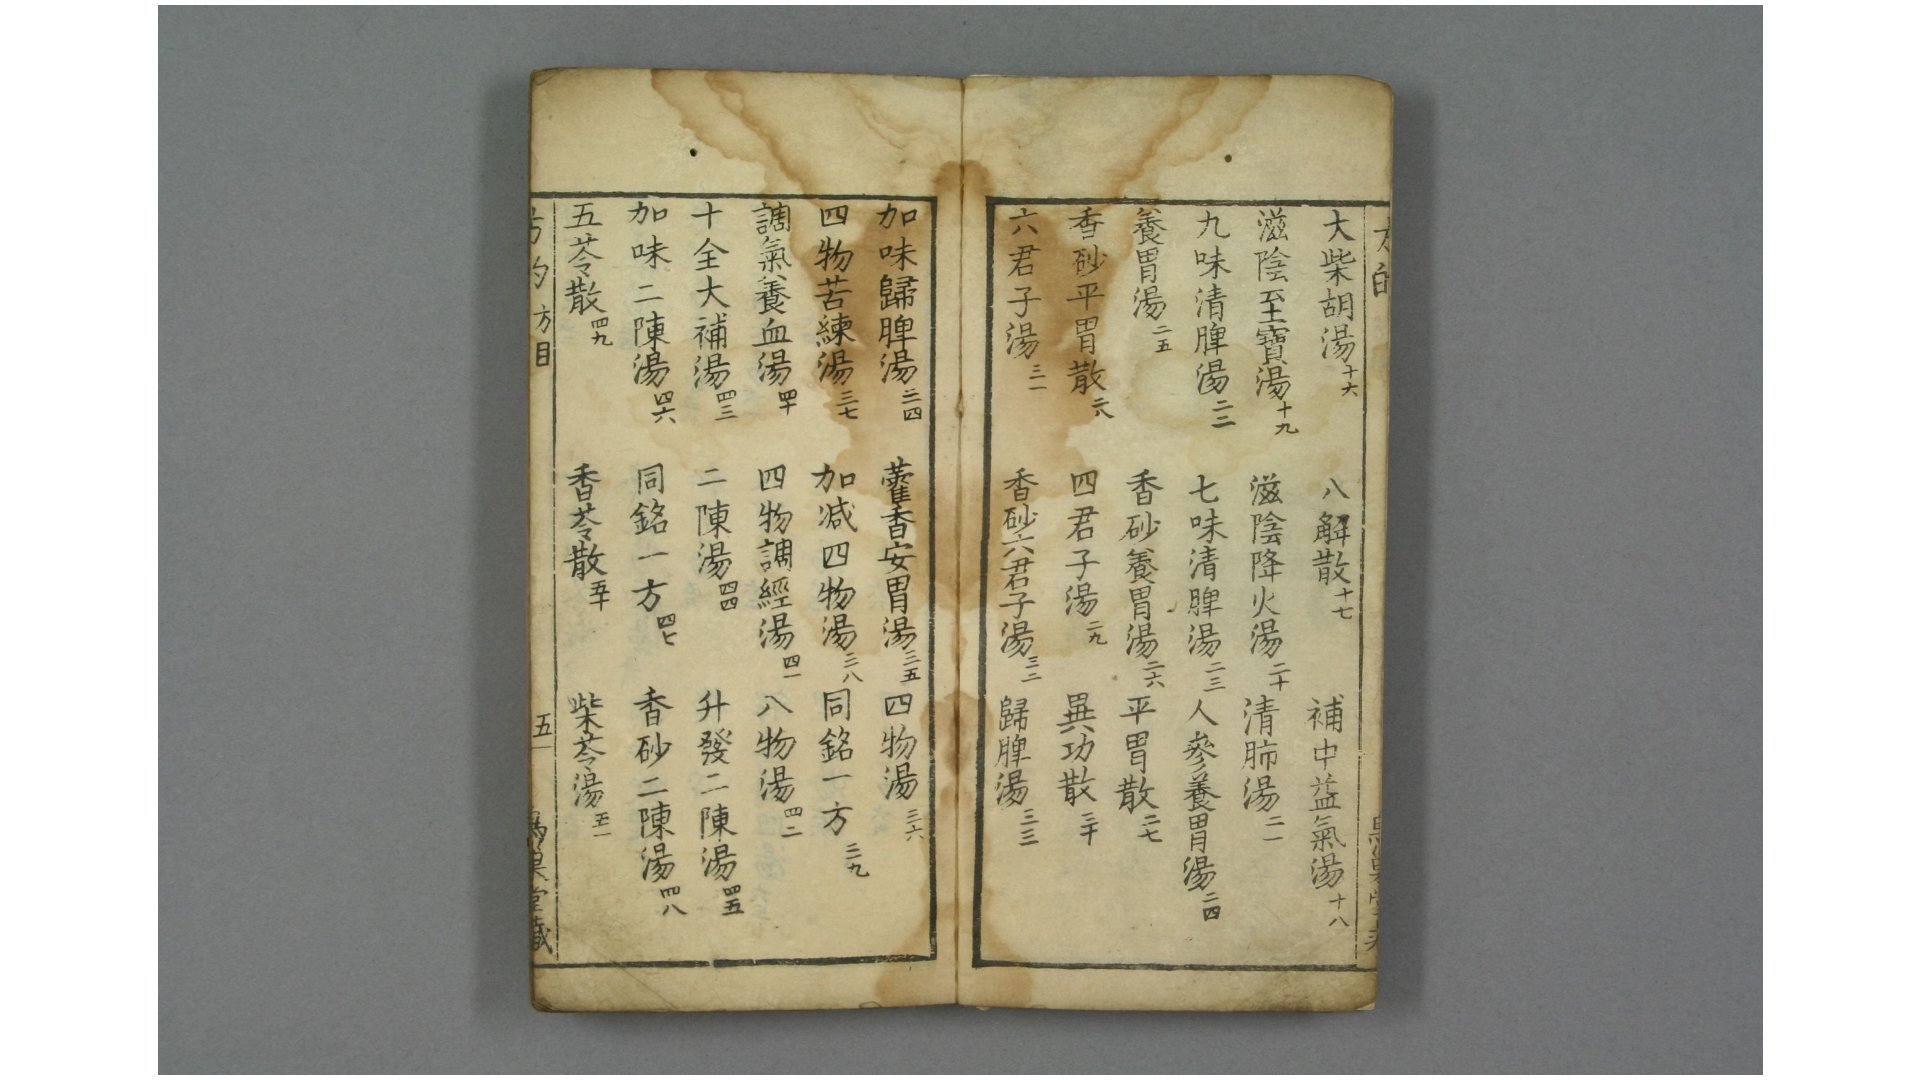 大柴胡湯十六 八解散十七 補中益氣湯十八
滋陰至寶湯十九 滋陰降火湯二十 清肺湯二一
九味清脾湯二二 七味清脾湯二三 人參養胃湯二四
養胃湯二五 香砂養胃湯二六 平胃散二七
香砂平胃散二八 四君子湯二九 異功散三十
六君子湯三一 香砂六君子湯三二 歸脾湯三三
加味歸脾湯三四 藿香安胃湯三五 四物湯三六
四物苦練湯三七 加减四物湯三八 同銘一方三九
調氣養血湯四十 四物調經湯四一 八物湯四二
十全大補湯四三 二陳湯四四 升發二陳湯四五
加味二陳湯四六 同銘一方四七 香砂二陳湯四八
五苓散四九 香苓散五十 柴苓湯五一
方目 五 巢堂藏